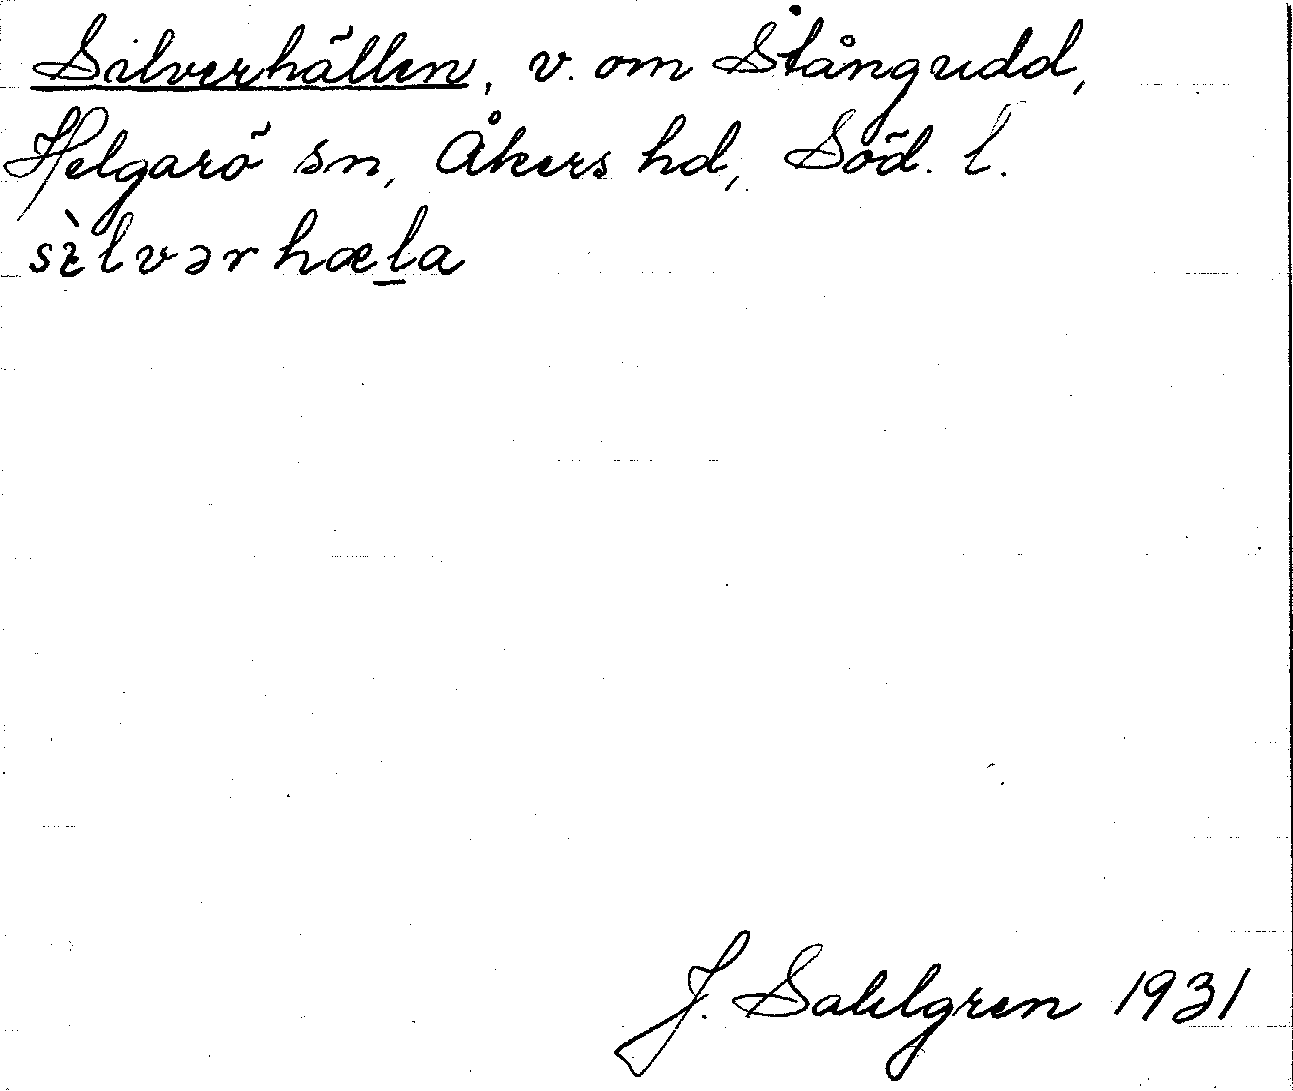 Silverhällen, v. om Stångudd,
Helgarö sn, Åkers hd, Söd. l.
sìlvərhæl̠a
J. Sahlgren 1931